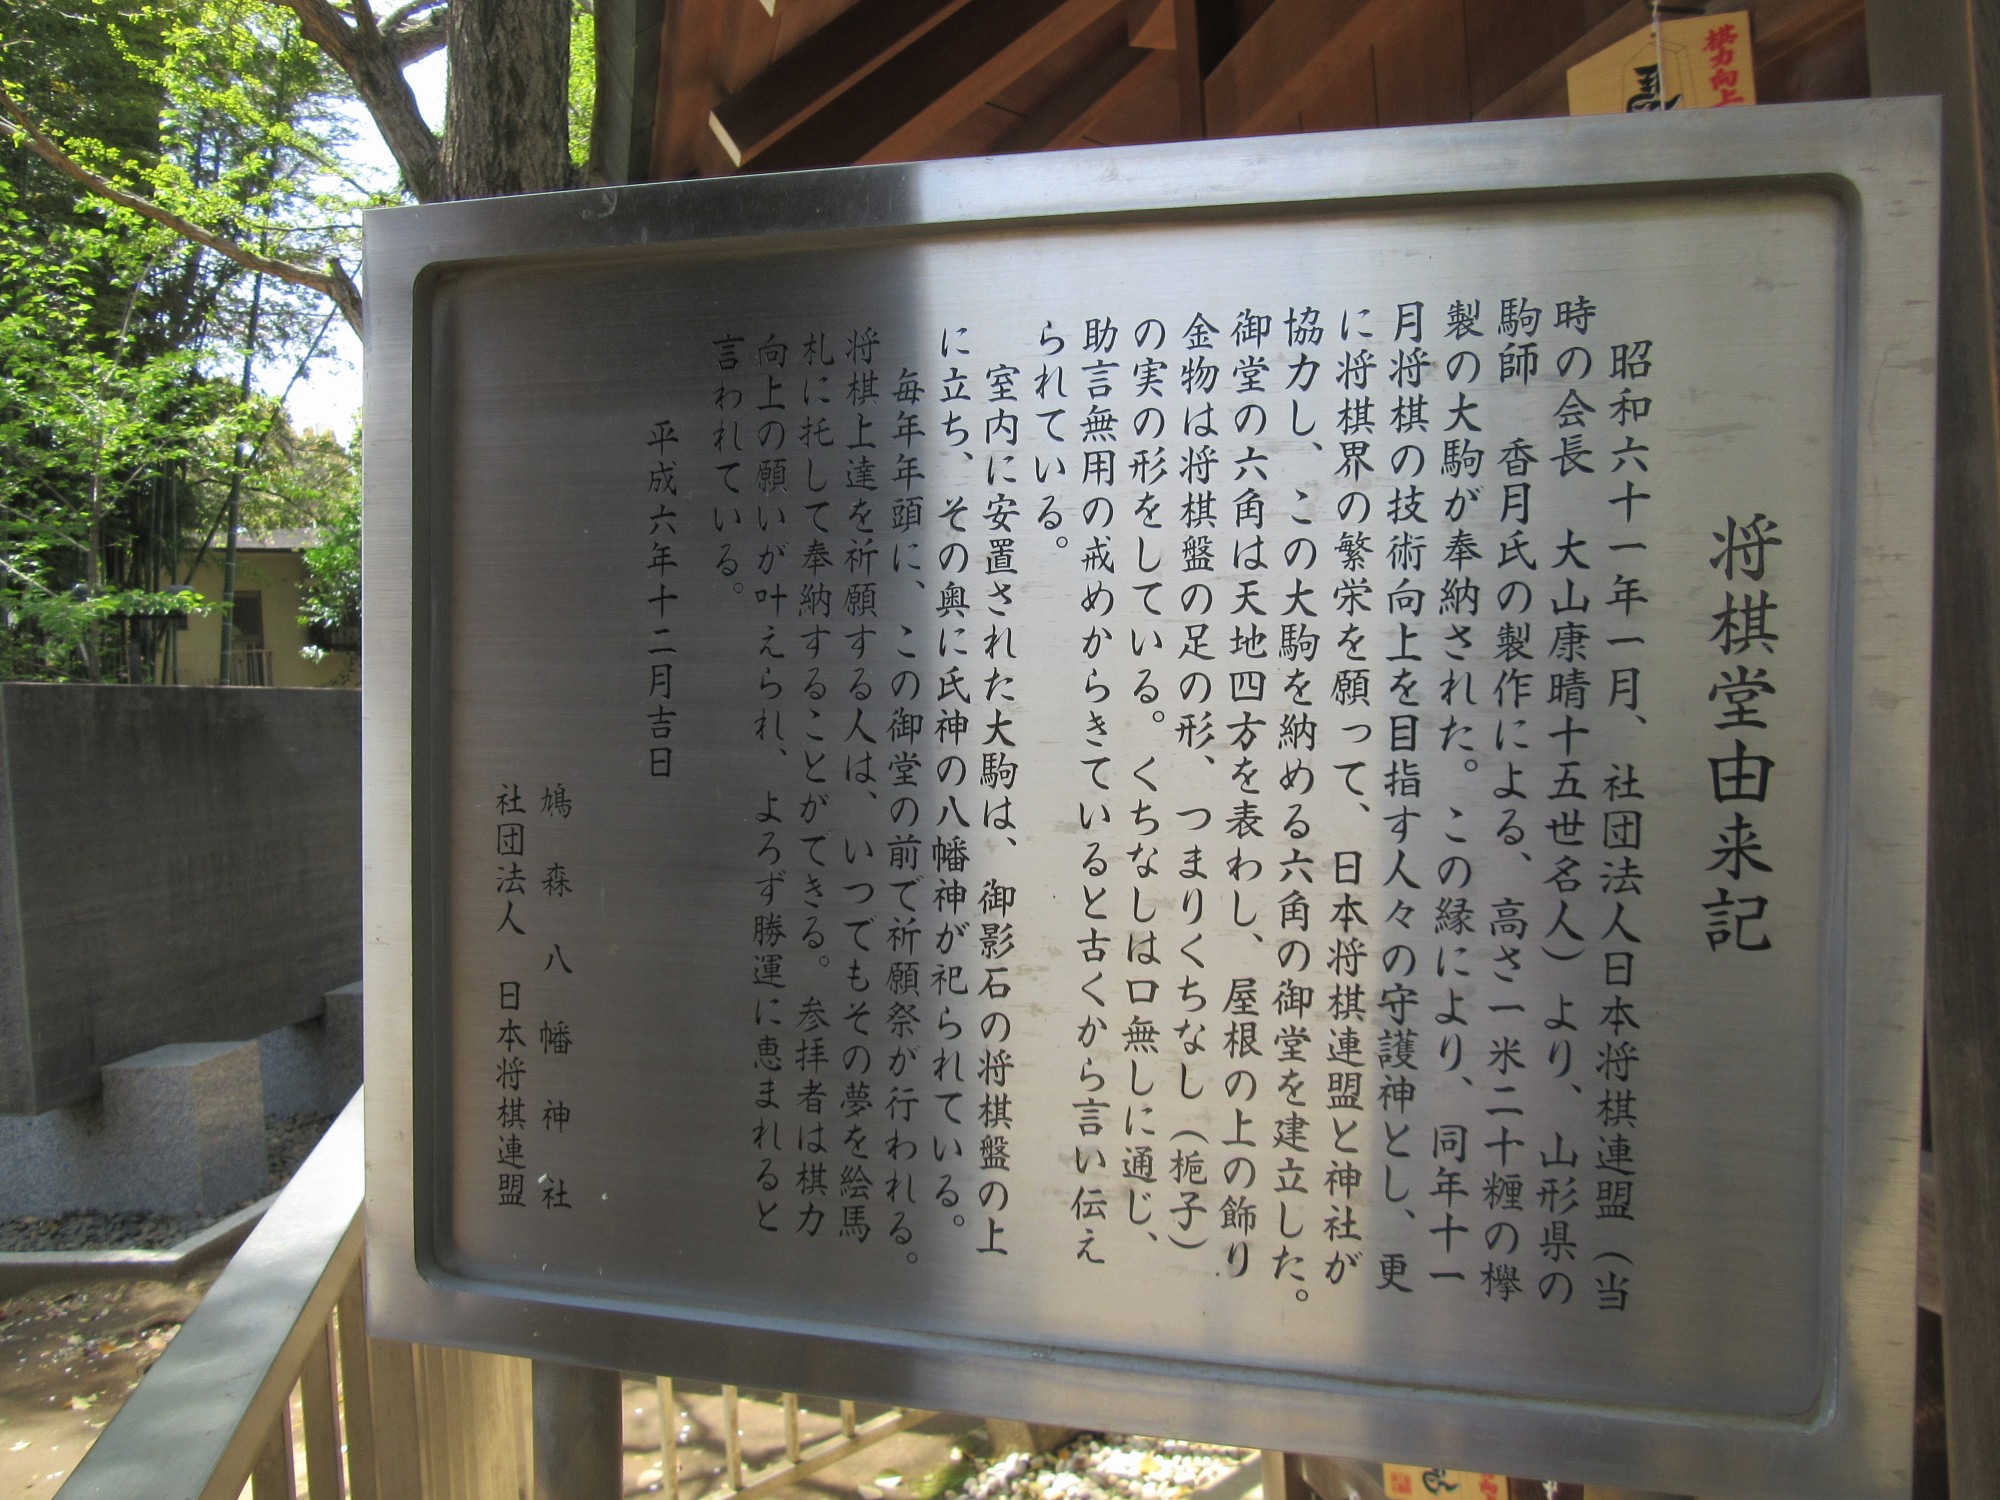 将棋堂由来記
昭和六十一年一月、社団法人日本将棋連盟（当
時の会長　大山康晴十五世名人）より、山形県の
駒師　香月氏の製作による、高さ一米二十糎の欅
製の大駒が奉納された。この縁により、同年十一
月将棋の技術向上を目指す人々の守護神とし、更
に将棋界の繁栄を願って、日本将棋連盟と神社が
協力し、この大駒を納める六角の御堂を建立した。
御堂の六角は天地四方を表わし、屋根の上の飾り
金物は将棋盤の足の形、つまりくちなし（梔子）
の実の形をしている。くちなしは口無しに通じ、
助言無用の戒めからきていると古くから言い伝え
られている。
室内に安置された大駒は、御影石の将棋盤の上
に立ち、その奥に氏神の八幡神が祀られている。
毎年年頭に、この御堂の前で祈願祭が行われる。
将棋上達を祈願する人は、いつでもその夢を絵馬
札に托して奉納することができる。参拝者は棋力
向上の願いが叶えられ、よろず勝運に恵まれると
言われている。
平成六年十二月吉日
鳩森八幡神社
社団法人　日本将棋連盟
棋力向上